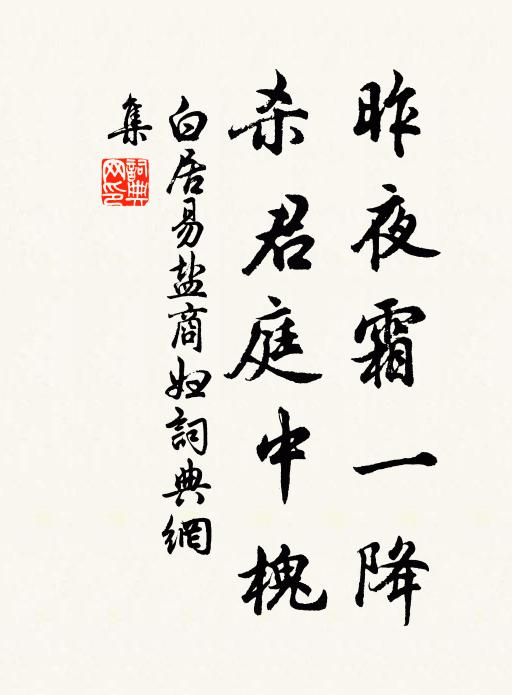 昨夜霜一降
杀君庭中槐
白居易盐商妇詞典網
集
詞典網印